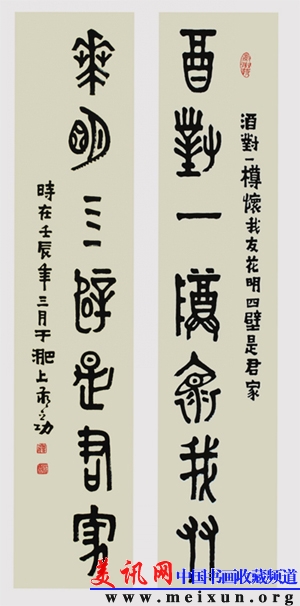 酉對一樽褱我友
酒對一樽懷我友花明四壁是君家
華明三壁是君家
時在壬辰年三月于淝上
美讯网 中国书画收藏频道
www.meixun.org